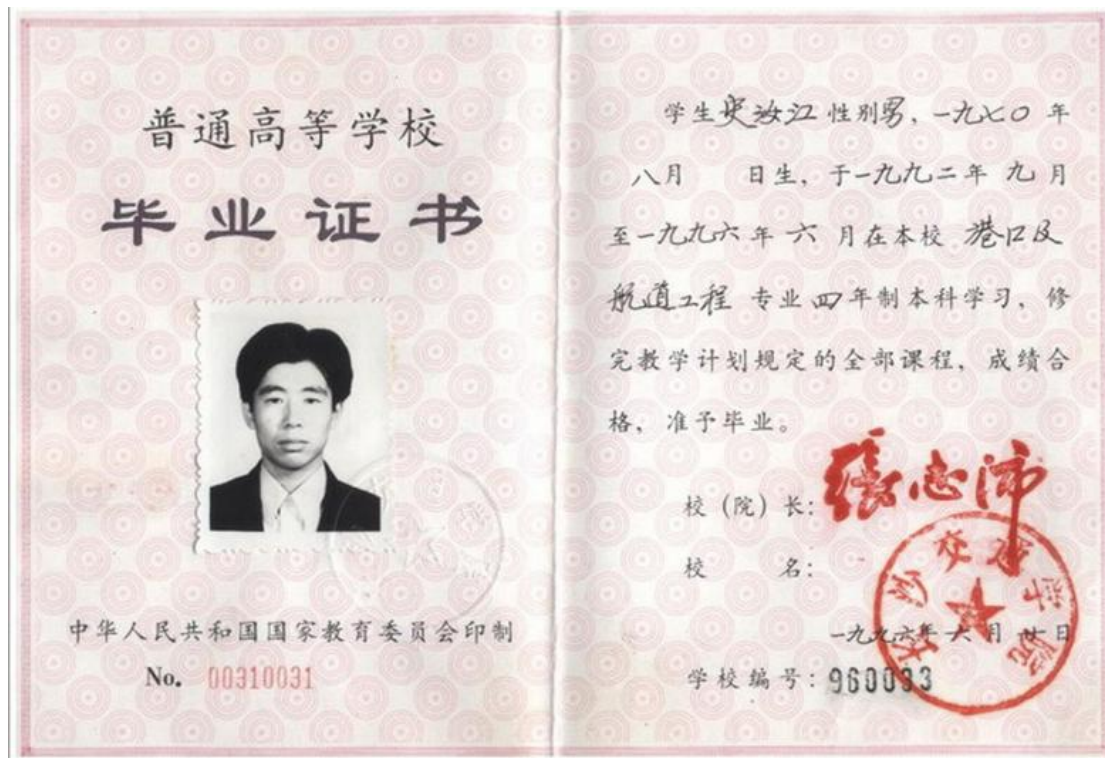 普通高等学校
毕业证书
中华人民共和国国家教育委员会印制
No. 00310031
学生史汝江性别男，一九七〇年
八月 日生，于一九九二年九月
至一九九六年六月在本校港口及
航道工程专业四年制本科学习，修
完教学计划规定的全部课程，成绩合
格，准予毕业。
校（院）长：张志沛
校 名：
长沙交通学院
一九九六年六月廿日
学校编号：960033